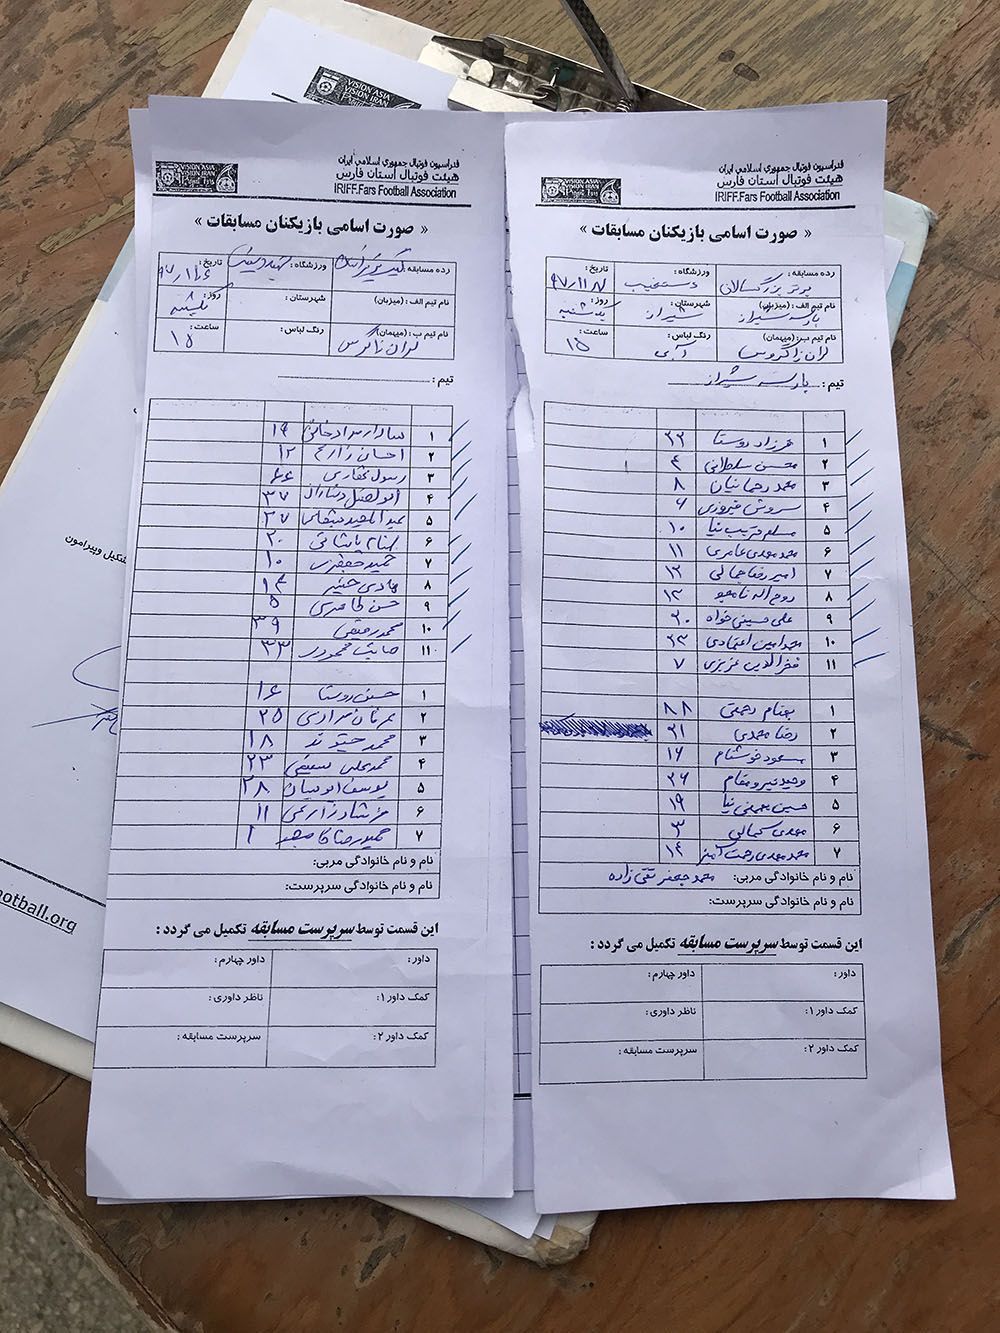 VISION ASIA
VISION IRAN
فدراسیون فوتبال جمهوری اسلامی ایران
هیئت فوتبال استان فارس
IRIFF.Fars Football Association
VISION ASIA
VISION IRAN
« صورت اسامی بازیکنان مسابقات »
رده مسابقه : ورزشگاه : تاریخ :
نام تیم الف : (میزبان) شهرستان : روز : یکشنبه
نام تیم ب : (میهمان) لران زاگرس رنگ لباس : ساعت : ۱۵
تیم :
۱ سالار مرادخانی ۱۹
۲ احسان زارع ۱۲
۳ رسول غفاری ۶۶
۴ ابوالفضل ۳۷
۵ ۲۷
۶ بهنام پاشائی ۲۰
۷ حمید جعفری ۱۰
۸ هادی ۱۴
۹ حسن طاهری ۵
۱۰ محمد رفیعی ۳۹
۱۱ ۳۳
۱ حسین روستا ۱۶
۲ عرفان مرادی ۲۵
۳ محمد ۱۸
۴ محمدعلی ۲۳
۵ یوسف ۲۸
۶ فرشاد زارعی ۱۱
۷ حمیدرضا ۱
نام و نام خانوادگی مربی:
نام و نام خانوادگی سرپرست:
این قسمت توسط سرپرست مسابقه تکمیل می گردد :
داور : داور چهارم :
کمک داور ۱: ناظر داوری :
کمک داور ۲: سرپرست مسابقه :
فدراسیون فوتبال جمهوری اسلامی ایران
هیئت فوتبال استان فارس
IRIFF.Fars Football Association
VISION ASIA
VISION IRAN
« صورت اسامی بازیکنان مسابقات »
رده مسابقه : برتر بزرگسالان ورزشگاه : دستغیب تاریخ : ۹۷/۱۱/۷
نام تیم الف : (میزبان) پارسه شیراز شهرستان : شیراز روز : یکشنبه
نام تیم ب : (میهمان) لران زاگرس رنگ لباس : آبی ساعت : ۱۵
تیم : پارسه شیراز
۱ فرزاد روستا ۲۲
۲ محسن سلطانی ۴
۳ محمد رحمانیان ۸
۴ سروش فیروزی ۶
۵ مسلم قریب نیا ۱۰
۶ محمد مهدی عامری ۱۱
۷ امیررضا جمالی ۱۲
۸ روح اله نامجو ۱۳
۹ علی حسینی خواه ۲۰
۱۰ محمد امین اعتمادی ۲۳
۱۱ فخرالدین عزیزی ۷
۱ بهنام رحمتی ۸۸
۲ رضا محمدی ۲۱
۳ مسعود خوشنام ۱۶
۴ وحید نیرومقام ۲۶
۵ حسین بهمنی نیا ۱۹
۶ مهدی کمالی ۳
۷ محمد مهدی رحمت ۱۴
نام و نام خانوادگی مربی: محمد جعفر تقی زاده
نام و نام خانوادگی سرپرست:
این قسمت توسط سرپرست مسابقه تکمیل می گردد :
داور : داور چهارم :
کمک داور ۱: ناظر داوری :
کمک داور ۲: سرپرست مسابقه :
تشکیل وپیرامون
ootball.org